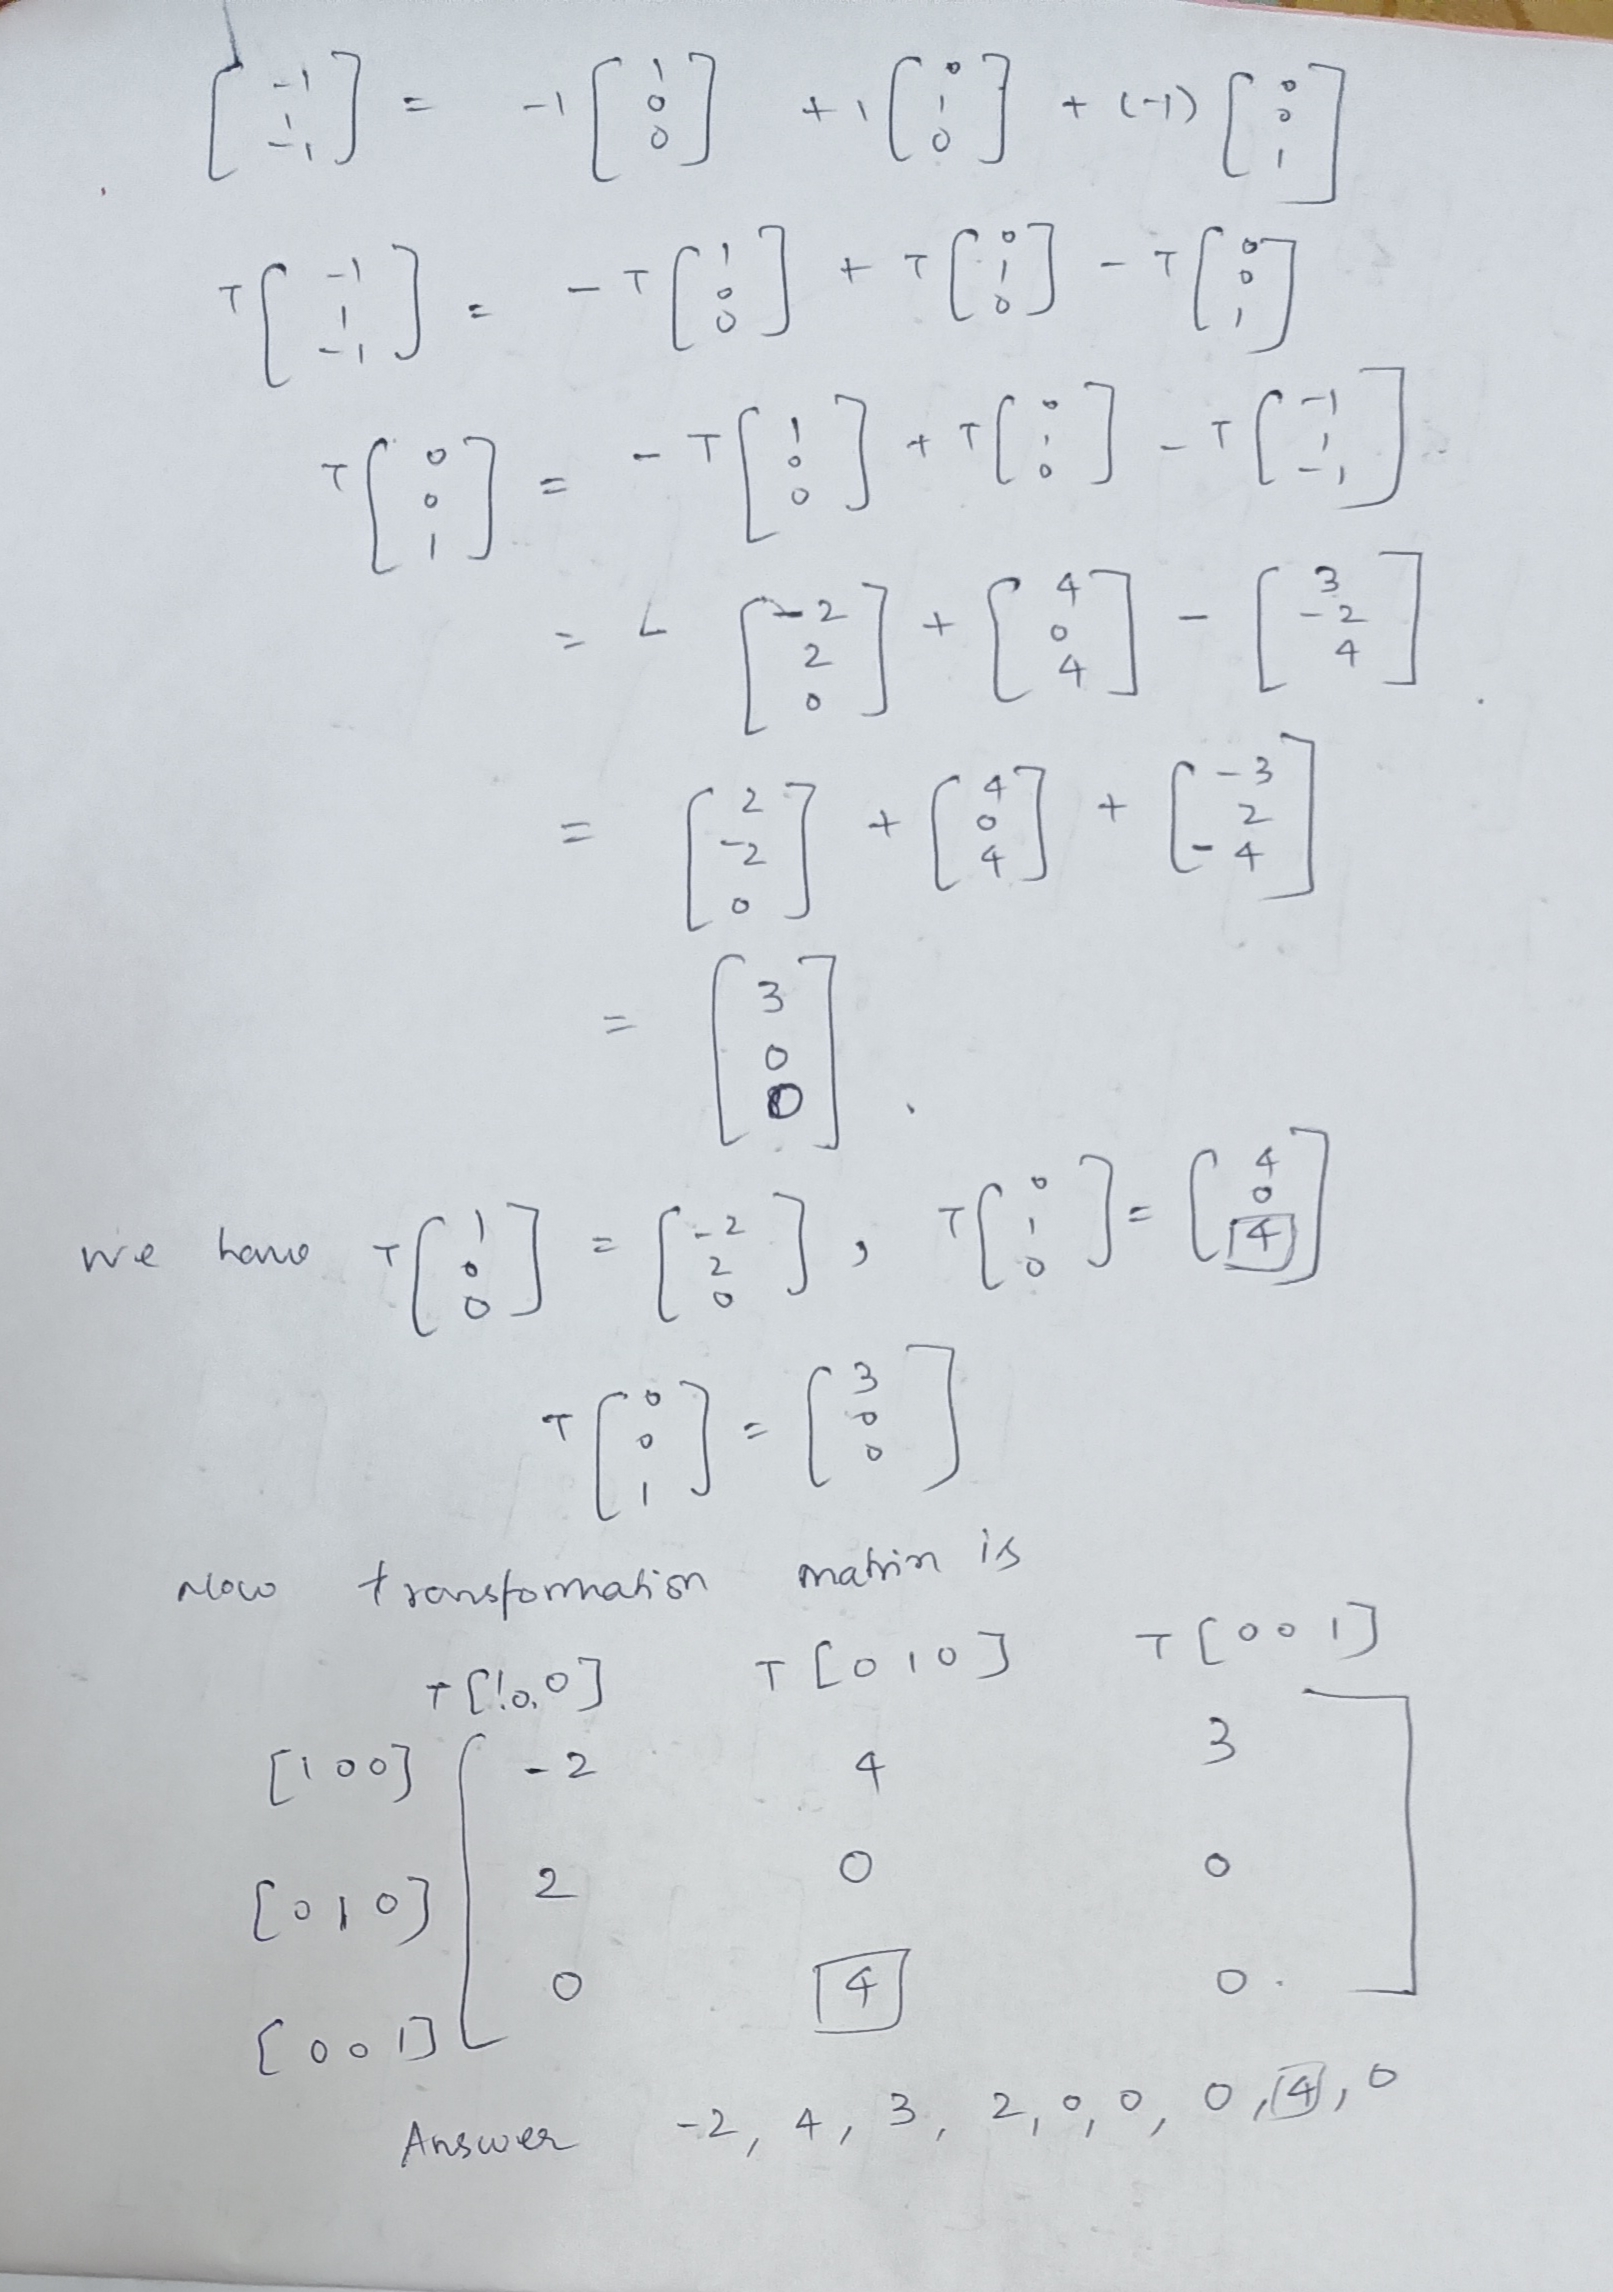 [-1 1 -1] = -1 [1 0 0] + 1 [0 1 0] + (-1) [0 0 1]
T[-1 1 -1] = -T[1 0 0] + T[0 1 0] - T[0 0 1]
T[0 0 1] = -T[1 0 0] + T[0 1 0] - T[-1 1 -1]
= - [-2 2 0] + [4 0 4] - [3 -2 4]
= [2 -2 0] + [4 0 4] + [-3 2 -4]
= [3 0 0].
we have T[1 0 0] = [-2 2 0], T[0 1 0] = [4 0 4]
T[0 0 1] = [3 0 0]
Now transformation matrix is
T[1 0 0] T[0 1 0] T[0 0 1]
[1 0 0] [ -2 4 3 ]
[0 1 0] 2 0 0
[0 0 1] 0 4 0.
Answer -2, 4, 3, 2, 0, 0, 0, 4, 0